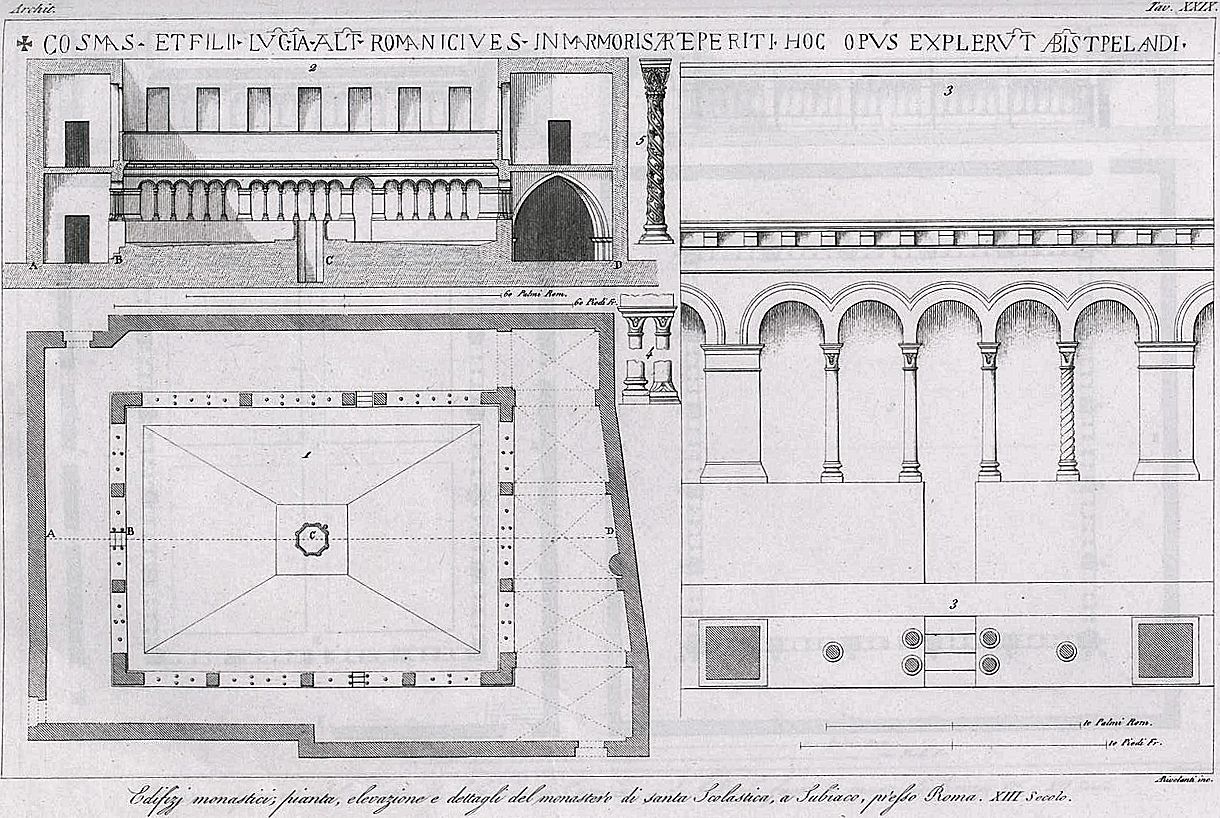 Archit.
Tav. XXIX.
✠ COSMAS · ET FILII · LVC̅· IA̅ · ALT̅ · ROMANI CIVES · IN MARMORIS ARTE PERITI · HOC OPVS EXPLERV̅T ABĪS T PE LANDI ·
2
3
5
A
B
C
D
60 Palmi Rom.
60 Piedi Fr.
4
1
A
B
C
D
3
10 Palmi Rom.
10 Piedi Fr.
inc.
Edifizj monastici; pianta, elevazione e dettagli del monastero di santa Scolastica, a Subiaco, presso Roma. XIII Secolo.